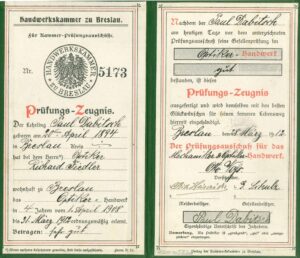 Handwerkskammer zu Breslau.
Für Kammer-Prüfungsausschüsse.
Nr. 5173
HANDWERKSKAMMER ZU BRESLAU
Prüfungs-Zeugnis.
Der Lehrling Paul Dabitsch
geboren am 20. April 1894
in Breslau Kreis
hat bei dem Herrn Optiker
Richard Fiedler
wohnhaft zu Breslau
das Optiker- Handwerk
in 4 Jahren vom 1. April 1908 bis
31. März 1912 ordnungsmässig erlernt.
Betragen: sehr gut
Nachdem der Paul Dabitsch
am heutigen Tage vor dem unterzeichneten
Prüfungsausschuss seine Gesellenprüfung im
Optiker- Handwerk
gut
bestanden, ist dieses
Prüfungs-Zeugnis
ausgefertigt und wird demselben mit den besten
Glückwünschen für seinen ferneren Lebensweg
hiermit übergeben.
Breslau, März 1912
Der Prüfungsausschuss für das
Mechaniker & Optiker- Handwerk.
F. Schulz
Paul Dabitsch
Eigenhändige Unterschrift des Inhabers.
Verlag der Handwerkskammer zu Breslau.